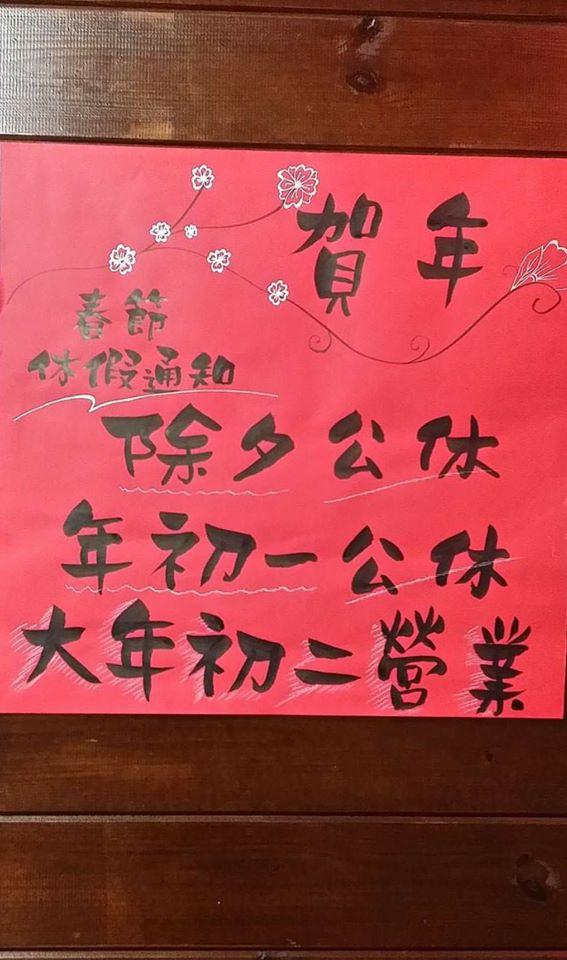 賀年
春節
休假通知
除夕公休
年初一公休
大年初二營業